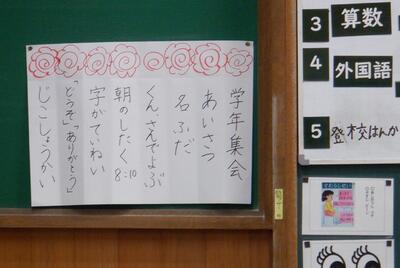 学年集会
あいさつ
名ふだ
くん、さんでよぶ
朝のしたく 8:10
字がていねい
「どうぞ」「ありがとう」
じこしょうかい
3 算数
4 外国語
5 登校はんか